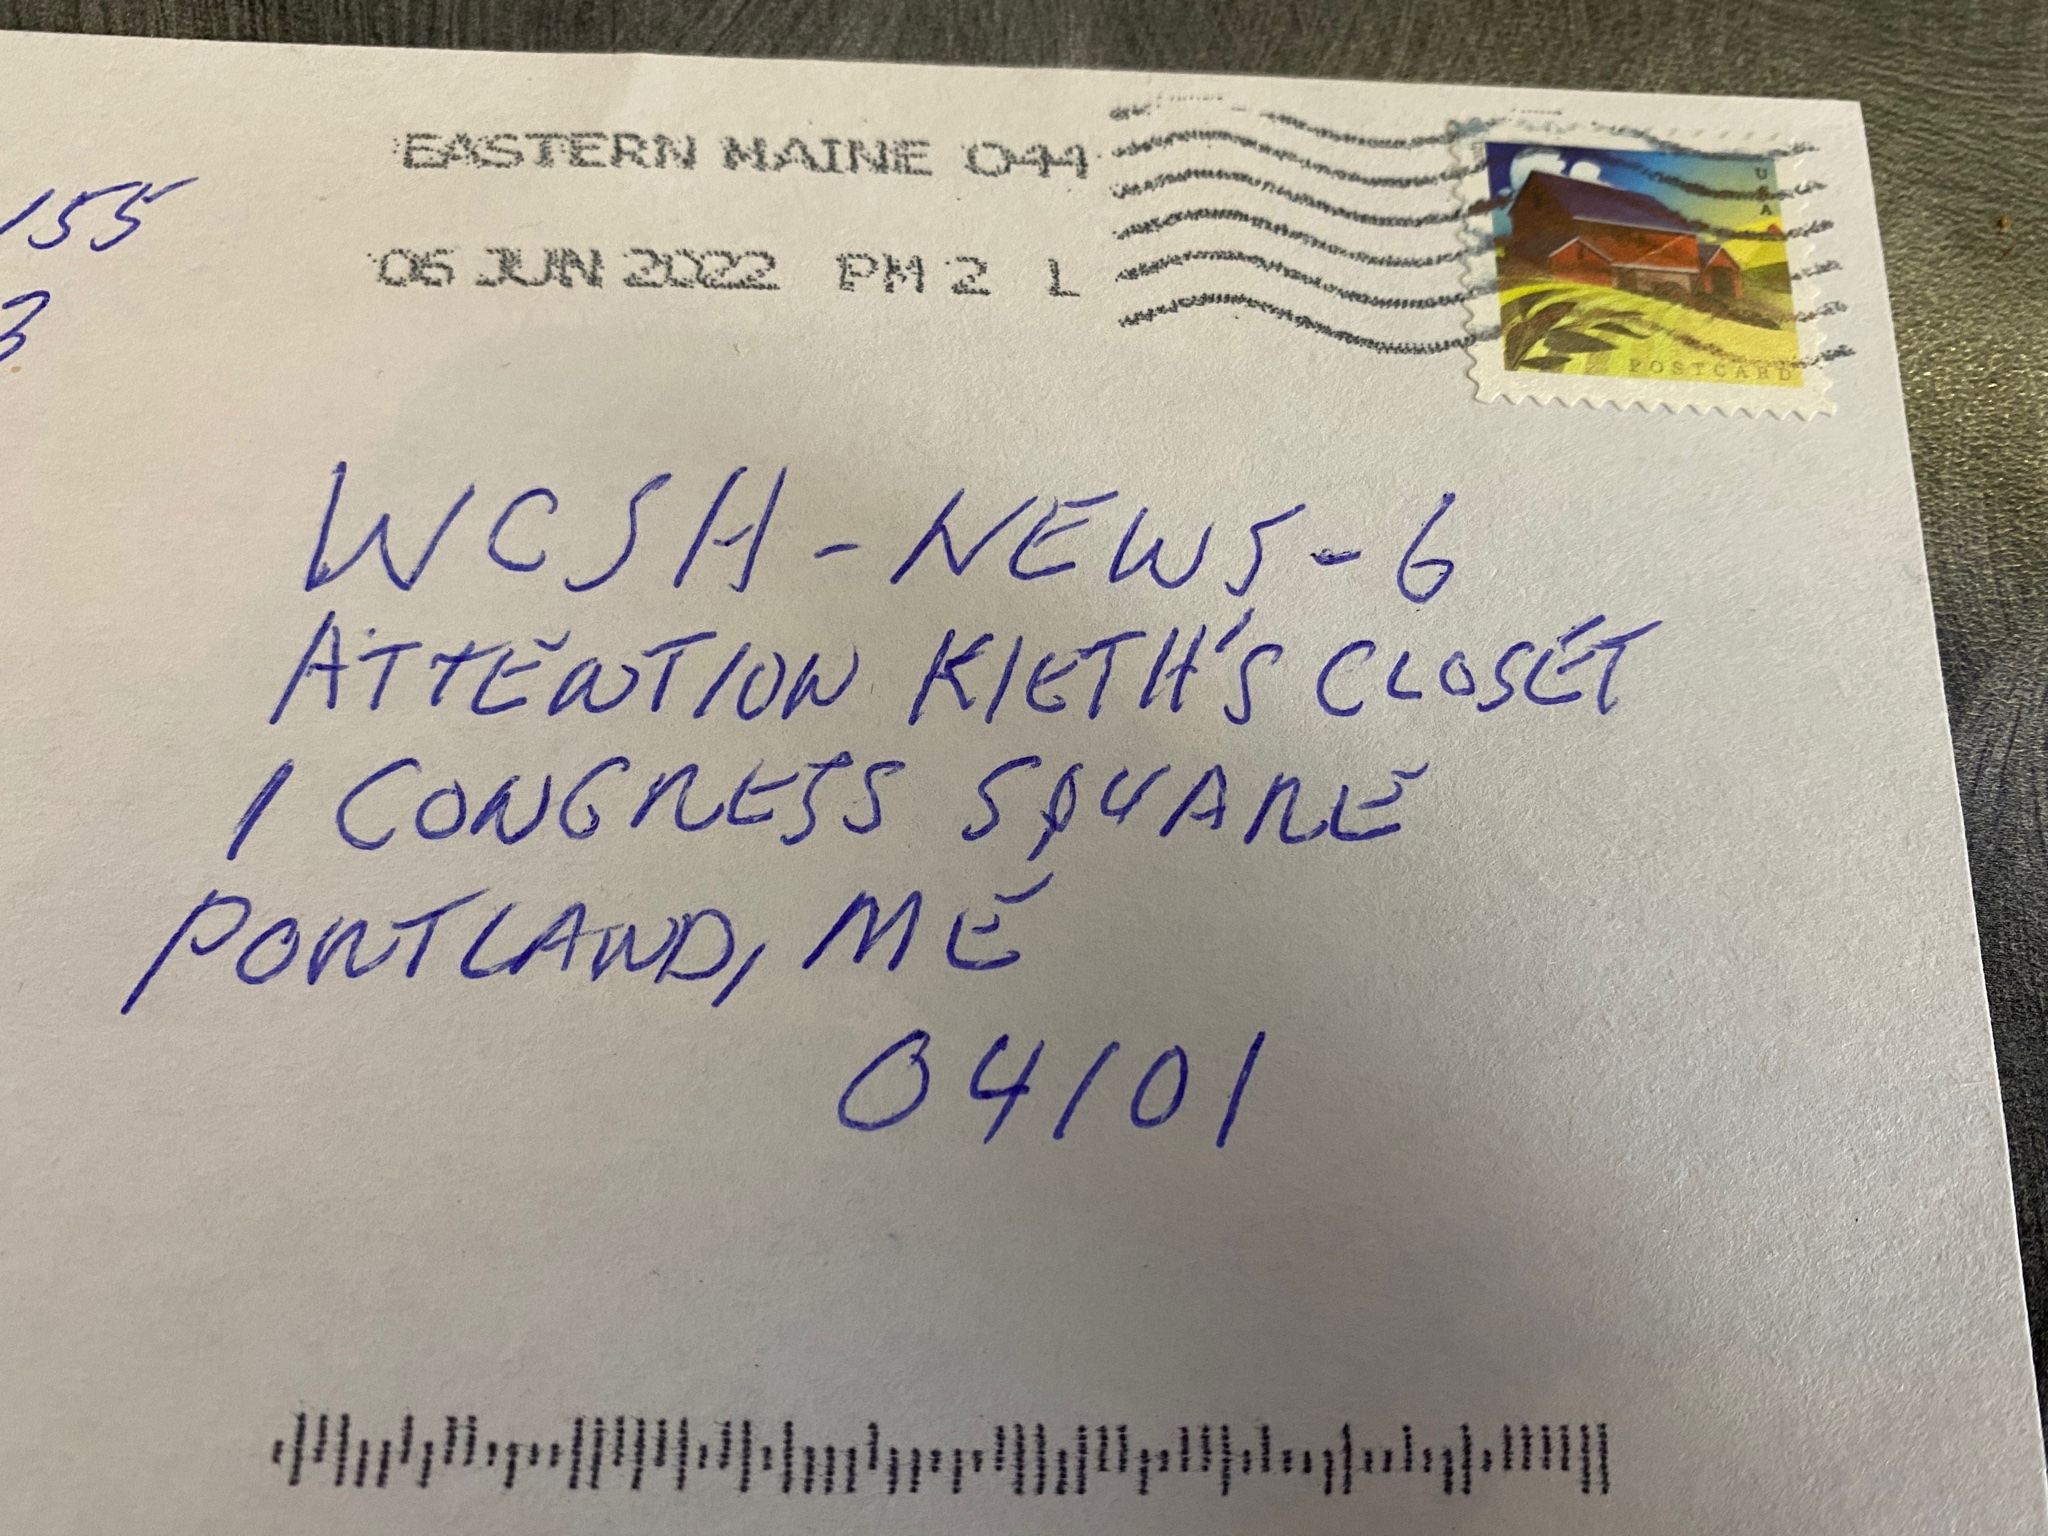 EASTERN MAINE 044
06 JUN 2022 PM 2 L
155
3
USA
POSTCARD
WCSH-NEWS-6
ATTENTION KIETH'S CLOSET
1 CONGRESS SQUARE
PORTLAND, ME
04101